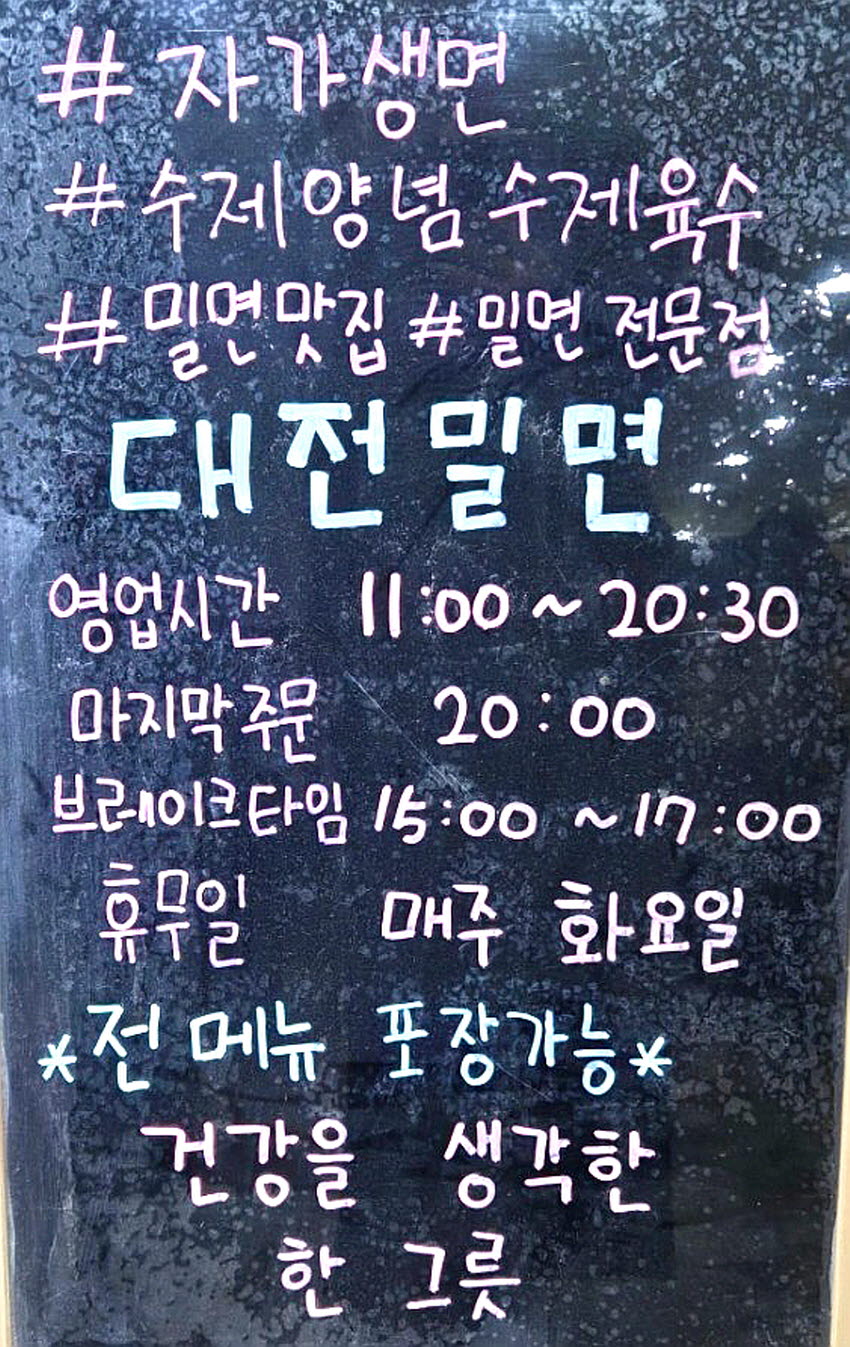 #자가생면
#수제양념 수제육수
#밀면맛집 #밀면 전문점
대전밀면
영업시간 11:00 ~ 20:30
마지막주문 20:00
브레이크타임 15:00 ~ 17:00
휴무일 매주 화요일
*전 메뉴 포장가능*
건강을 생각한
한 그릇